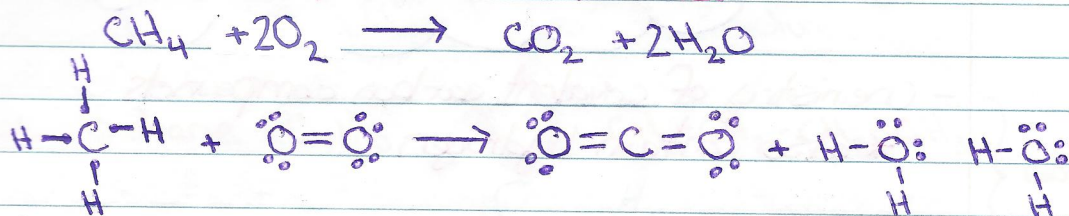 CH₄ + 2O₂ → CO₂ + 2H₂O
H
H-C-H + O=O → O=C=O + H-O: H-O:
H H H